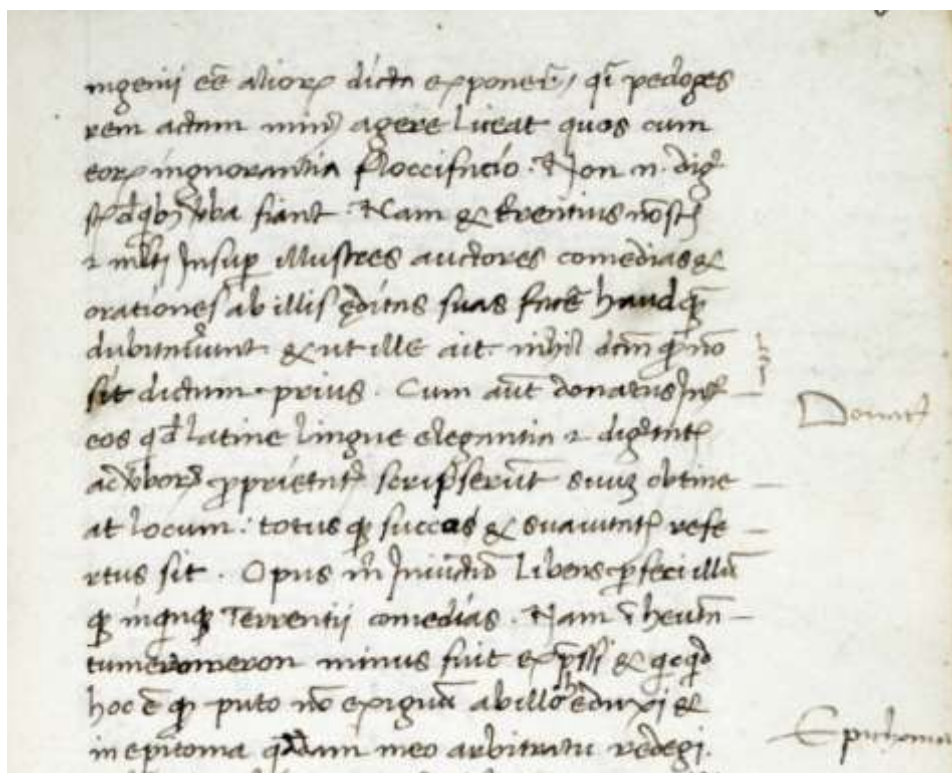 ingenii eē alioꝝ dicta exponeꝛ̄, qī pedoges
rem actam minꝰ agere liceat quos cum
eoꝝ ingnorantia floccifacio. Non n. dig
ꝟba fiant. Nam & terentius nostꝭ
& mlti Insuꝑ illustres auctores comedias &
orationes ab illis ęditas suas facē haudqꝫ
dubitauꝭunt & ut ille ait. nihil dcm̄ qꝫ nō
sit dictum prius. Cum aūt donatus Inꝭ
eos qđ latine lingue elegantia & dignitatꝭ
ac ꝟborꝝ ꝓprietatꝭ scripserūt suuꝫ obtine
at locum: totus qꝫ succos & suauitatꝭ refe
rtus sit. Opus m̄ Iniūctū libens ꝑfeci illū
qꝫ inquinqꝫ Terrentii comedias. Nam ī heum
tumeromeron minus fuit exp̄ssi & qcqđ
hoc ē qꝫ puto nō exiguū ab illo hedurxi &
in epitoma qđdam meo arbitratu redegi.
Donatꝰ
Epithoma